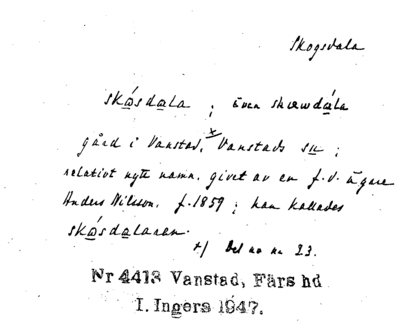 Skogsdala
skǻsdala ; även skawdála
gård i Vanstad, x Vanstads sn ;
relativt nytt namn, givet av en f.d. ägare
Anders Nilsson, f. 1859 ; han kallades
skǻsdalaren.
x/ Del av nr 23.
Nr 4413 Vanstad, Färs hd
I. Ingers 1947.